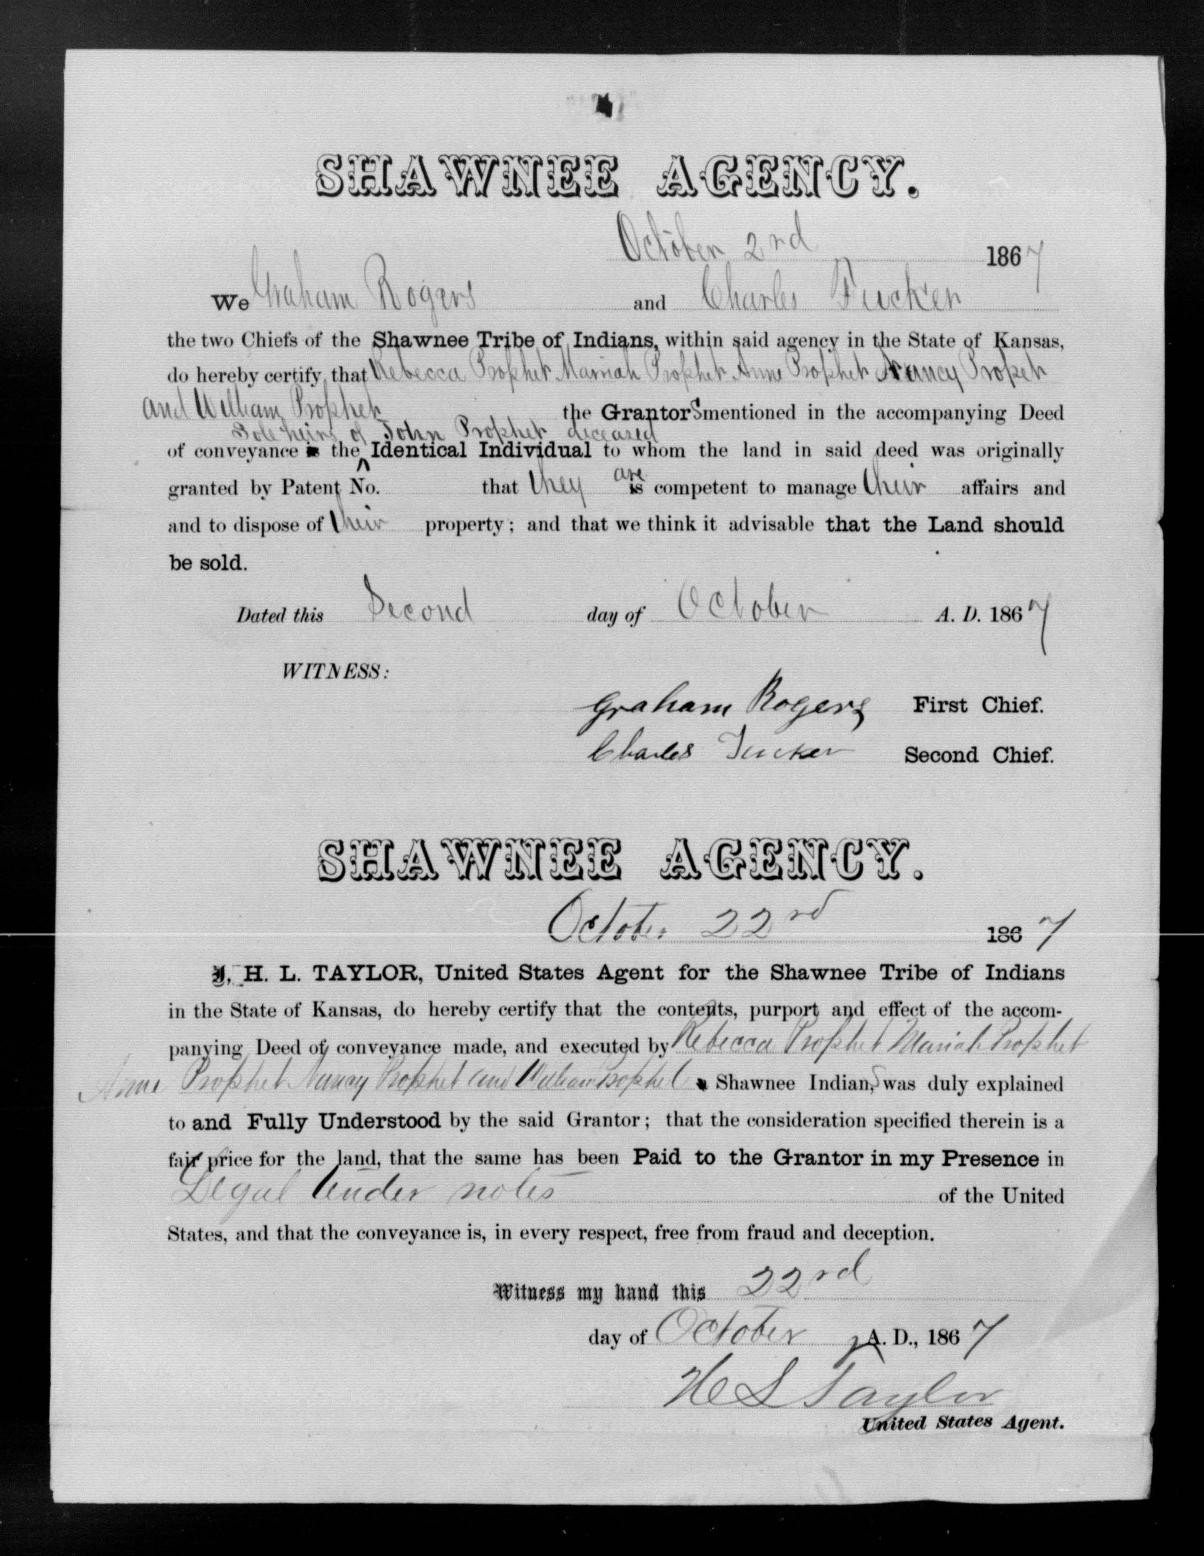 SHAWNEE AGENCY.
October 2nd 1867
We Graham Rogers and Charles Tucker
the two Chiefs of the Shawnee Tribe of Indians, within said agency in the State of Kansas,
do hereby certify that Rebecca Prophet Mariah Prophet Anne Prophet Nancy Propet
and William Prophet the Grantors mentioned in the accompanying Deed
Sole heirs of John Prophet deceased
of conveyance is the ^ Identical Individual to whom the land in said deed was originally
granted by Patent No. that they are is competent to manage their affairs and
and to dispose of their property; and that we think it advisable that the Land should
be sold.
Dated this Second day of October A. D. 1867
WITNESS:
Graham Rogers First Chief.
Charles Tucker Second Chief.
SHAWNEE AGENCY.
October 22rd 1867
I, H. L. TAYLOR, United States Agent for the Shawnee Tribe of Indians
in the State of Kansas, do hereby certify that the contents, purport and effect of the accom-
panying Deed of conveyance made, and executed by Rebecca Prophet Mariah Prophet
Anne Prophet Nancy Prophet and William Prophet a Shawnee Indians, was duly explained
to and Fully Understood by the said Grantor; that the consideration specified therein is a
fair price for the land, that the same has been Paid to the Grantor in my Presence in
Legal tender notes of the United
States, and that the conveyance is, in every respect, free from fraud and deception.
Witness my hand this 22rd
day of October A. D., 1867
H L Taylor
United States Agent.